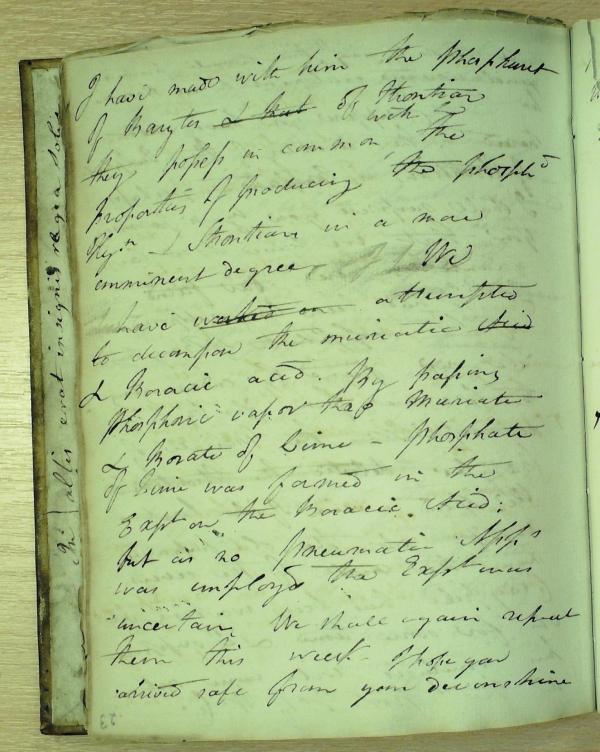 I have made with him the phosphuret
of Barytes & that of Strontian
they possess in common with the
properties of producing the phosphd
Hygn & Strontian in a more
emminent degree We
have worked on attempted
to decompose the muriatic Acid
& Boracic acid. By passing
Phosphoric vapor thro Muriate
& Borate of Lime – Phosphate
of Lime was formed in the
Expt on the Boracic Acid;
but as no pneumatic Apps
was employd the Expt was
uncertain We shall again repeat
them this week – I hope you
arrived safe from your Devonshire
in albis erat insignis regia solis
23